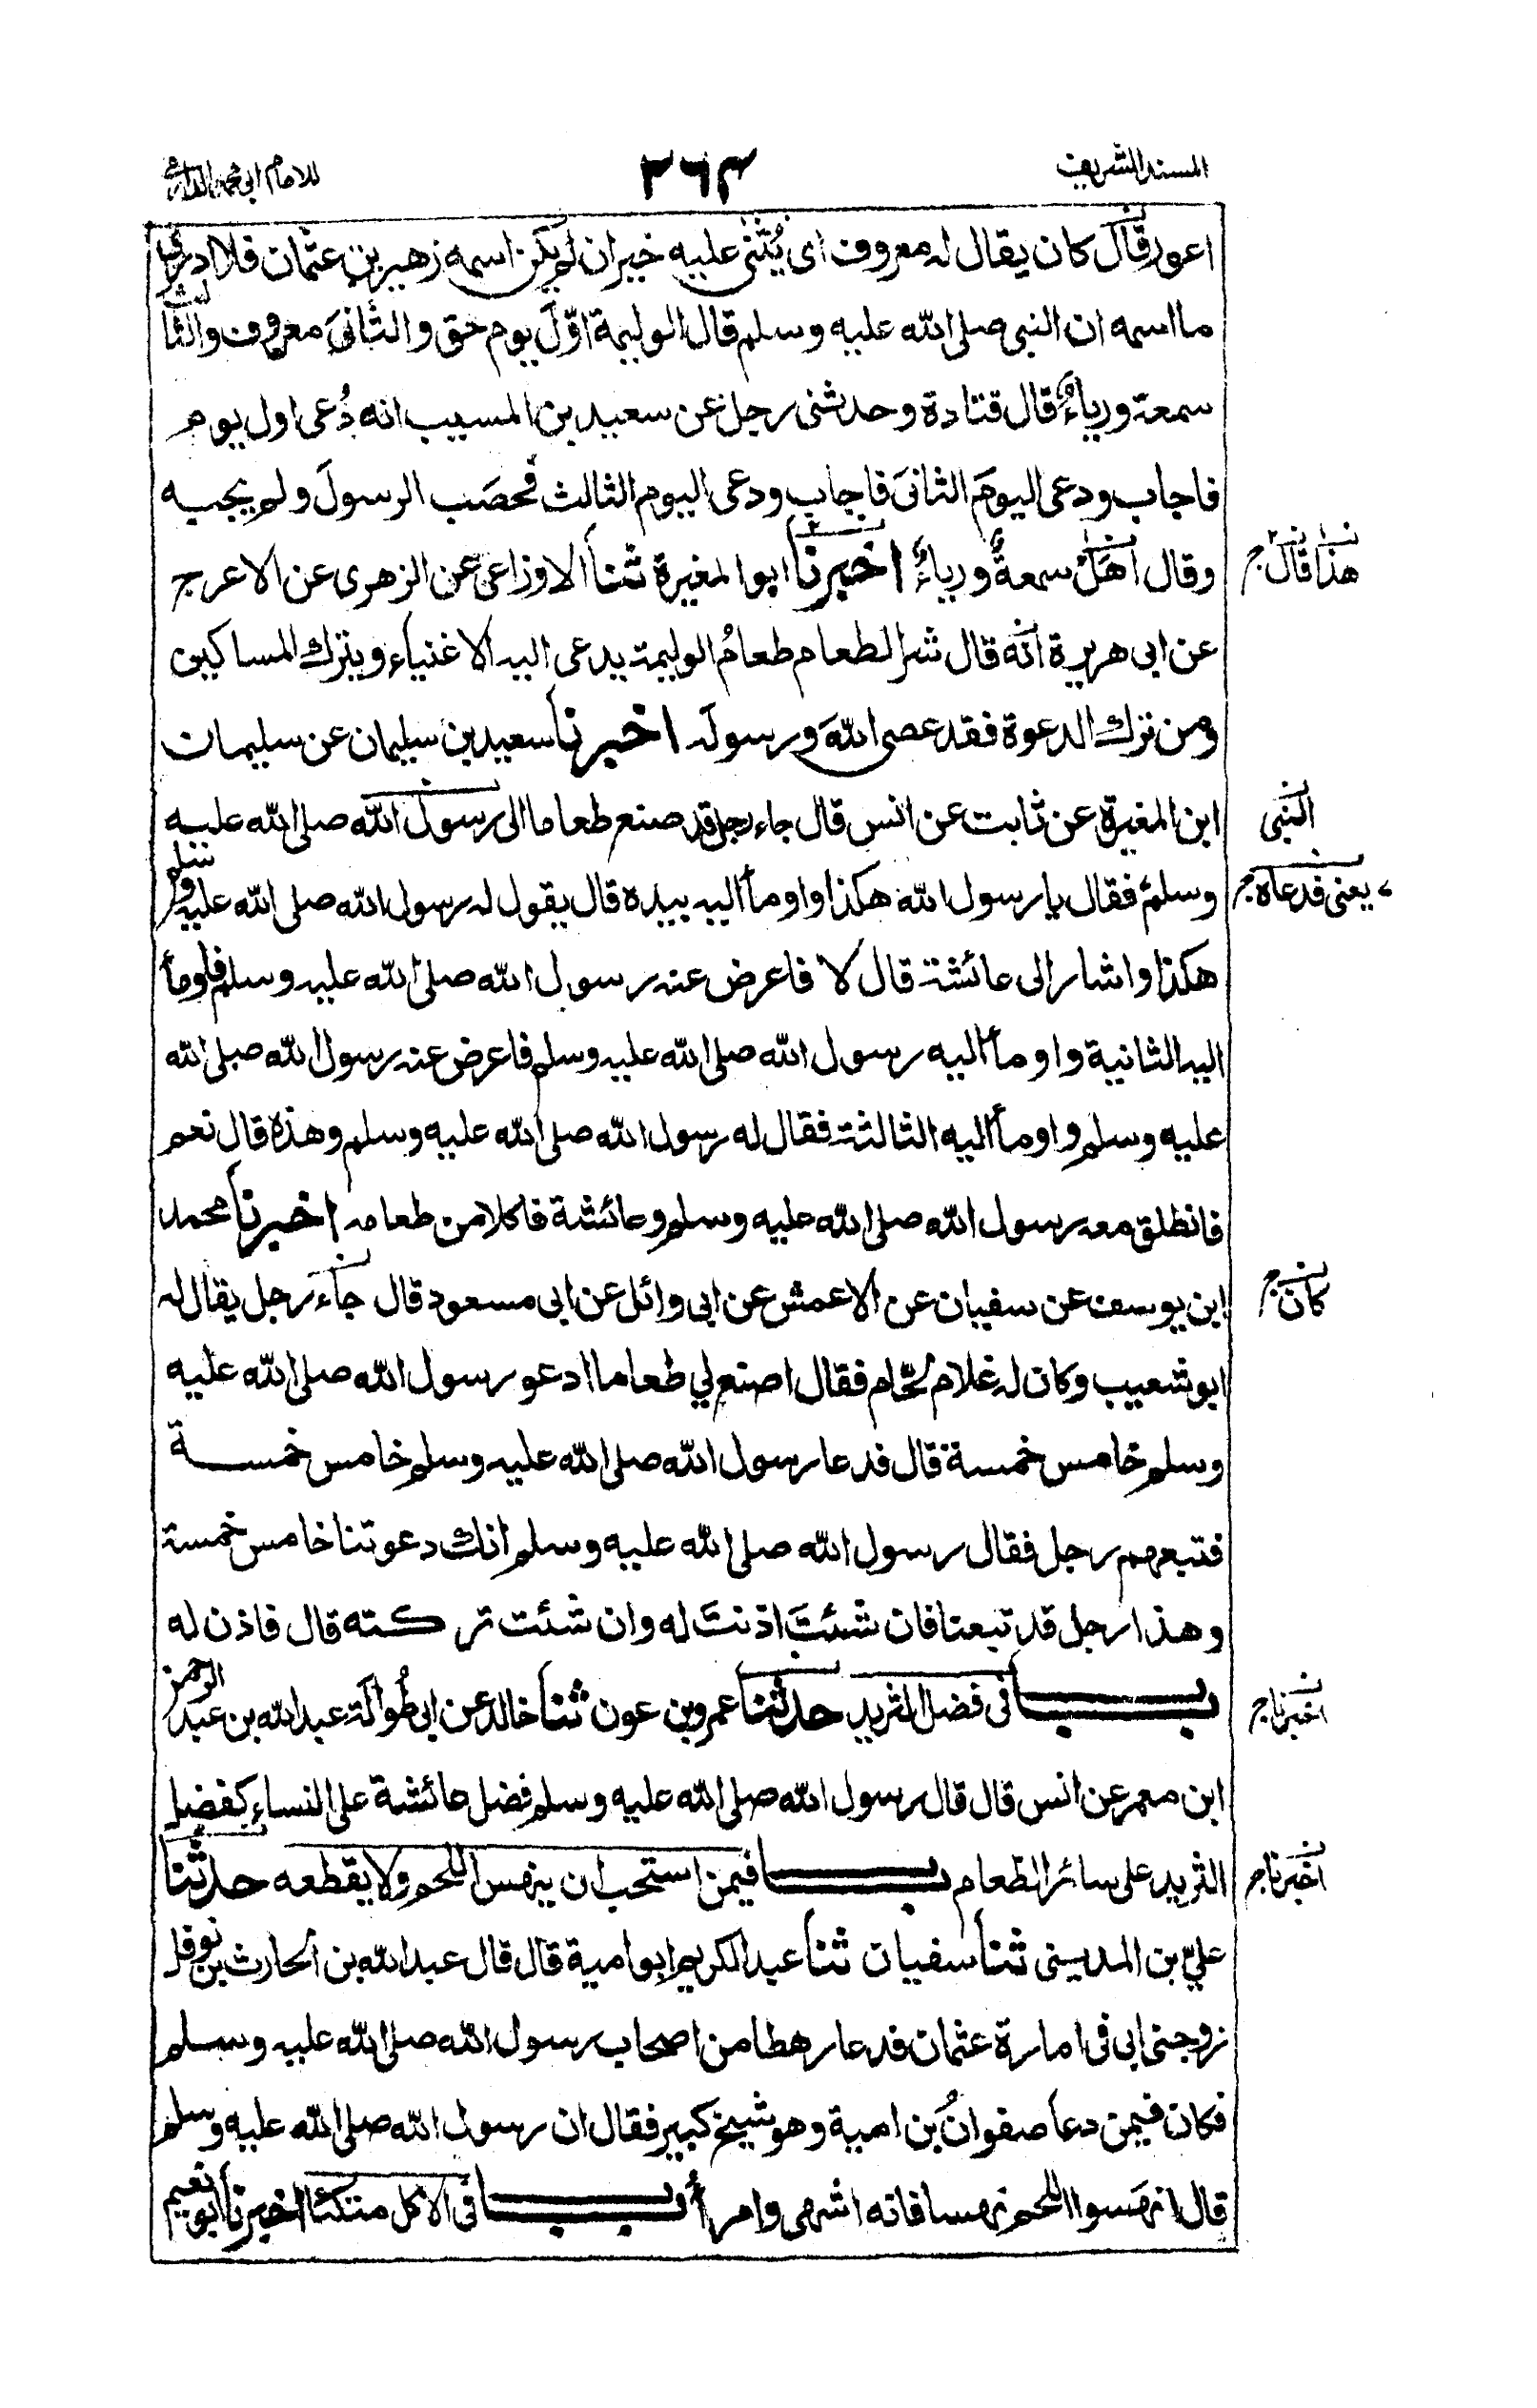 المسند الشريف ٣٦٤ للامام ابي محمد الدارمي
اعور قال كان يقال له معروف اى يُثنى عليه خير ان لم يكن اسمه زهير بن عثمان فلا ادري
ما اسمه ان النبي صلى الله عليه وسلم قال الوليمة اوّلَ يوم حق والثانيَ معروف والثالث
سمعة ورياءٌ قال قتادة وحدثنى رجل عن سعيد بن المسيب انه دُعى اول يوم
فاجاب ودعى اليومَ الثانىَ فاجاب ودعى اليوم الثالث فحصَب الرسولَ ولم يجبه
وقال اهل سمعةٌ ورياءٌ اخبرنا ابو المغيرة ثنا الاوزاعى عن الزهرى عن الاعرج
هذا قال
عن ابى هريرة انه قال شر الطعام طعامُ الوليمة يدعى اليه الاغنياء ويترك المساكين
ومن ترك الدعوة فقد عصى اللهَ ورسولَه اخبرنا سعيد بن سليمان عن سليمان
ابن المغيرة عن ثابت عن انس قال جاء رجل قد صنع طعاما الى رسول الله صلى الله عليه
النبى
وسلم فقال يا رسول الله هكذا واومأ اليه بيده قال يقول له رسول الله صلى الله عليه وسلم
يعنى فدعاه
هكذا واشار الى عائشة قال لا فاعرض عنه رسول الله صلى الله عليه وسلم فاومأ
اليه الثانية واومأ اليه رسول الله صلى الله عليه وسلم فاعرض عنه رسول الله صلى الله
عليه وسلم واومأ اليه الثالثة فقال له رسول الله صلى الله عليه وسلم وهذه قال نعم
فانطلق معه رسول الله صلى الله عليه وسلم وعائشة فاكلا من طعامه اخبرنا محمد
ابن يوسف عن سفيان عن الاعمش عن ابى وائل عن ابى مسعود قال جاء رجل يقال له
كان
ابو شعيب وكان له غلام لحّام فقال اصنع لي طعاما ادعو رسول الله صلى الله عليه
وسلم خامس خمسة قال فدعا رسول الله صلى الله عليه وسلم خامس خمسة
فتبعهم رجل فقال رسول الله صلى الله عليه وسلم انك دعوتنا خامس خمسة
وهذا رجل قد تبعنا فان شئتَ اذنتَ له وان شئت تركته قال فاذن له
باب فى فضل الثريد حدثنا عمرو بن عون ثنا خالد عن ابى طُوالة عبد الله بن عبد الرحمن
اخبرنا
ابن معمر عن انس قال قال رسول الله صلى الله عليه وسلم فضل عائشة على النساء كفضل
الثريد على سائر الطعام باب فيمن استحب ان ينهس اللحم ولا يقطعه حدثنا
اخبرنا
عليّ بن المدينى ثنا سفيان ثنا عبد الكريم ابو امية قال قال عبد الله بن الحارث بن نوفل
زوجنى ابى فى امارة عثمان فدعا رهطا من اصحاب رسول الله صلى الله عليه وسلم
فكان فيمن دعا صفوانُ بن امية وهو شيخ كبير فقال ان رسول الله صلى الله عليه وسلم
قال انهَسوا اللحم نهسا فانه اشهى وامرأ باب فى الاكل متكئا اخبرنا ابو نعيم